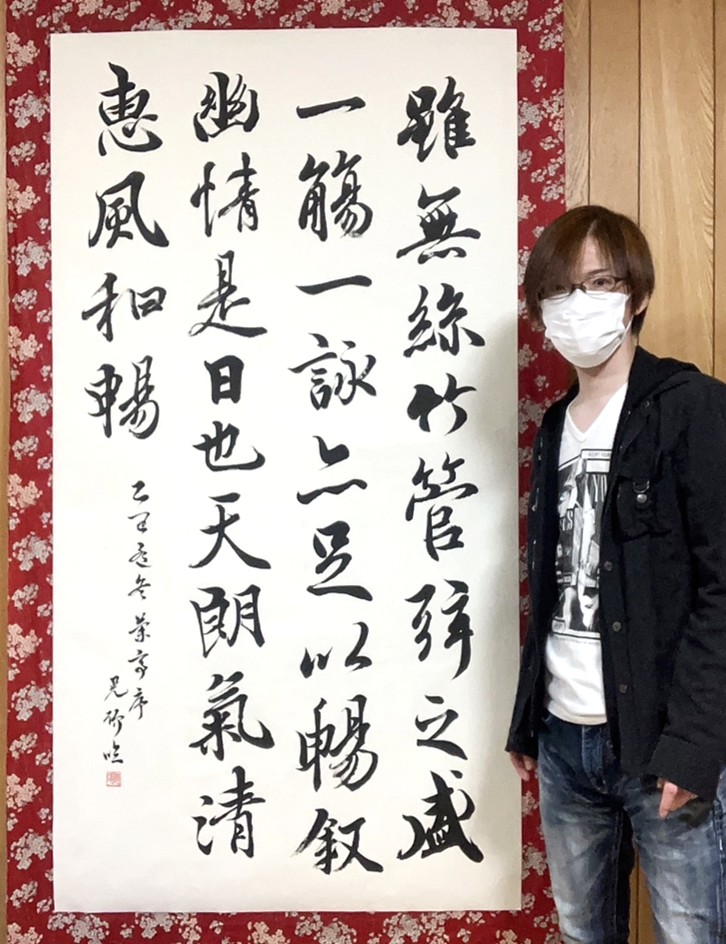 雖無絲竹管弦之盛
一觴一詠亦足以暢叙
幽情是日也天朗氣清
惠風和暢
蘭亭序